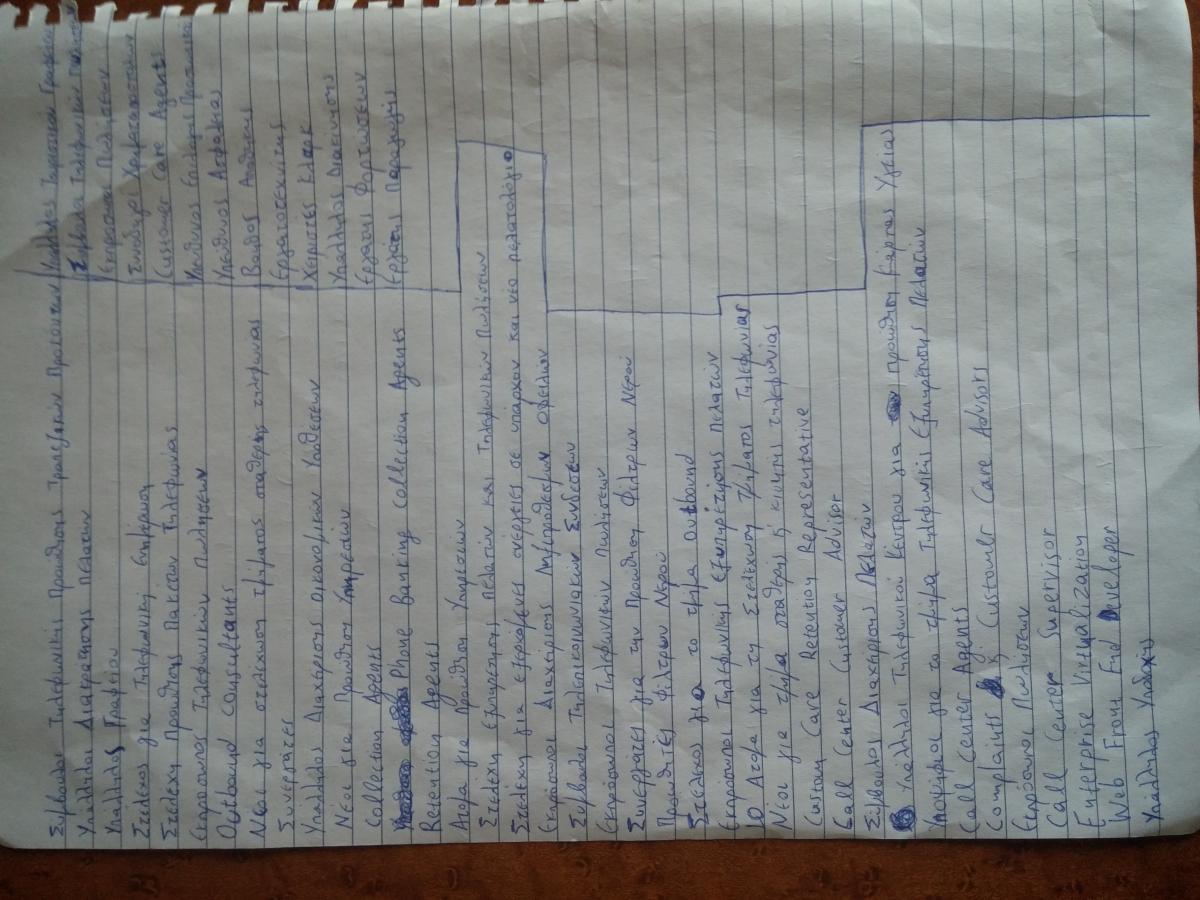 Σύμβουλοι Τηλεφωνικής Προώθησης Τραπεζικών Προϊόντων
Υπάλληλοι Διατήρησης Πελατών
Υπάλληλος Γραφείου
Στέλεχος για Τηλεφωνική Ενημέρωση
Στελέχη Προώθησης Πακέτων Τηλεφωνίας
Εκπρόσωπος Τηλεφωνικών Πωλήσεων
Outbound Consultants
Νέοι για στελέχωση τμήματος σταθερής τηλεφωνίας
Συνεργάτες
Υπάλληλοι Διαχείρισης Οικονομικών Υποθέσεων
Νέοι για Προώθηση Υπηρεσιών
Collection Agents
Phone Banking Collection Agents
Retention Agents
Άτομα για Προώθηση Υπηρεσιών
Στελέχη Εξυπηρέτησης Πελατών και Τηλεφωνικών Πωλήσεων
Στελέχη για εξερχόμενες ενέργειες σε υπάρχον και νέο πελατολόγιο
Εκπρόσωποι Διαχείρισης Ληξιπρόθεσμων οφειλών
Σύμβουλοι Τηλεπικοινωνιακών Συνδέσεων
Εκπρόσωποι Τηλεφωνικών Πωλήσεων
Συνεργάτες για την Προώθηση Φίλτρων Νερού
Προωθητές Φίλτρων Νερού
Στελέχος για το τμήμα Outbound
Εκπρόσωποι Τηλεφωνικής Εξυπηρέτησης Πελατών
10 Άτομα για τη Στελέχωση Τμήματος Τηλεφωνίας
Νέοι για τμήμα σταθερής ή κινητής τηλεφωνίας
Care Retention Representative
Call Center Customer Advisor
Σύμβουλοι Διαχείρισης Πελατών
Υπάλληλοι Τηλεφωνικού Κέντρου για προώθηση Κάρτας Υγείας
Υποψήφιοι για το τμήμα Τηλεφωνικής Εξυπηρέτησης Πελατών
Call Center Agents
Complaints & Customer Care Advisors
Εκπρόσωποι Πωλήσεων
Call Center Supervisor
Enterprise Virtualization
Web Front End Developer
Υπάλληλος Υποδοχής
Υπάλληλος Γραφείου
Σύμβουλοι Τηλεφωνικών Πωλήσεων
Εκπρόσωποι Πωλήσεων
Συνοδηγοί Χρηματαποστολών
Customer Care Agents
Υπεύθυνος Επιλογής Προσωπικού
Υπεύθυνος Ασφαλείας
Βοηθός Αποθήκης
Εργατοτεχνίτης
Χειριστές Κλαρκ
Υπάλληλοι Διακίνησης
Εργάτες Φορτώσεων
Εργάτης Παραγωγής